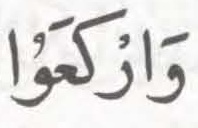 وَارْكَعَوُا